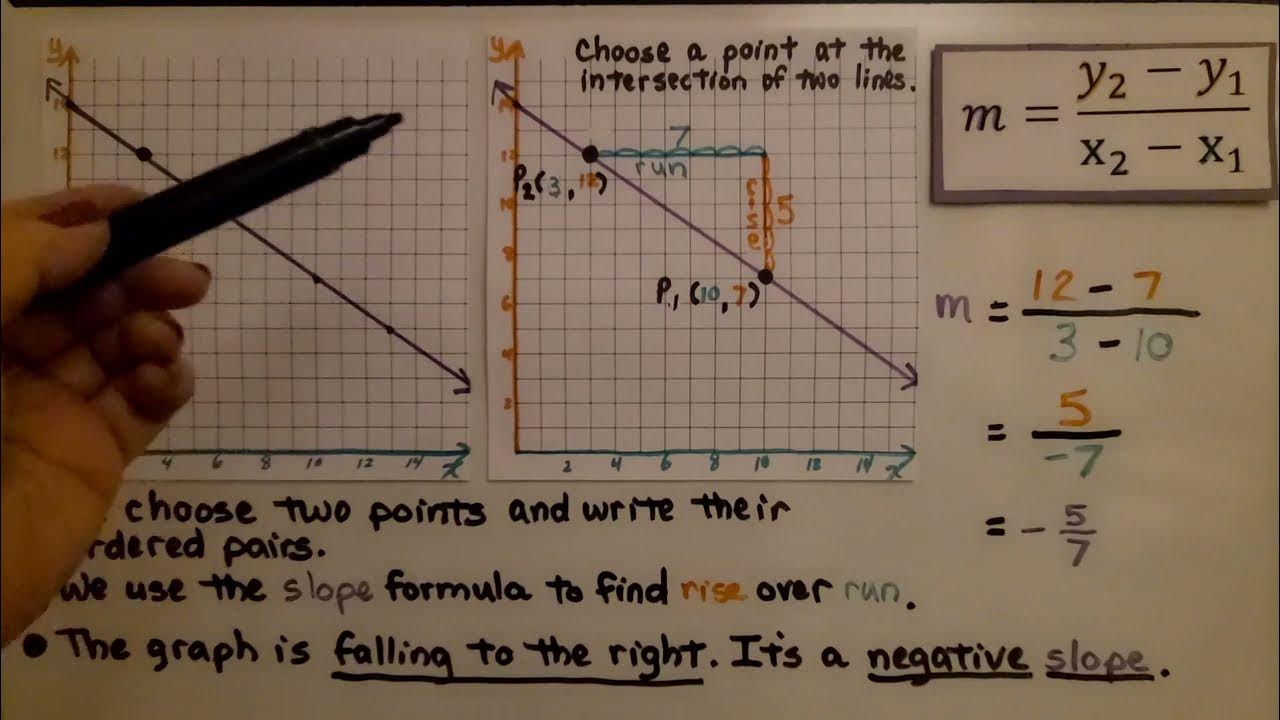 y
4 6 8 10 12 14 x
y
Choose a point at the
intersection of two lines.
7
run
P2(3, 12)
rise
5
P1(10, 7)
8
6
4
2
2 4 6 8 10 12 14 x
m = y2 − y1
x2 − x1
m = 12 - 7
3 - 10
= 5
-7
= - 5
7
choose two points and write their
rdered pairs.
we use the slope formula to find rise over run.
• The graph is falling to the right. It's a negative slope.